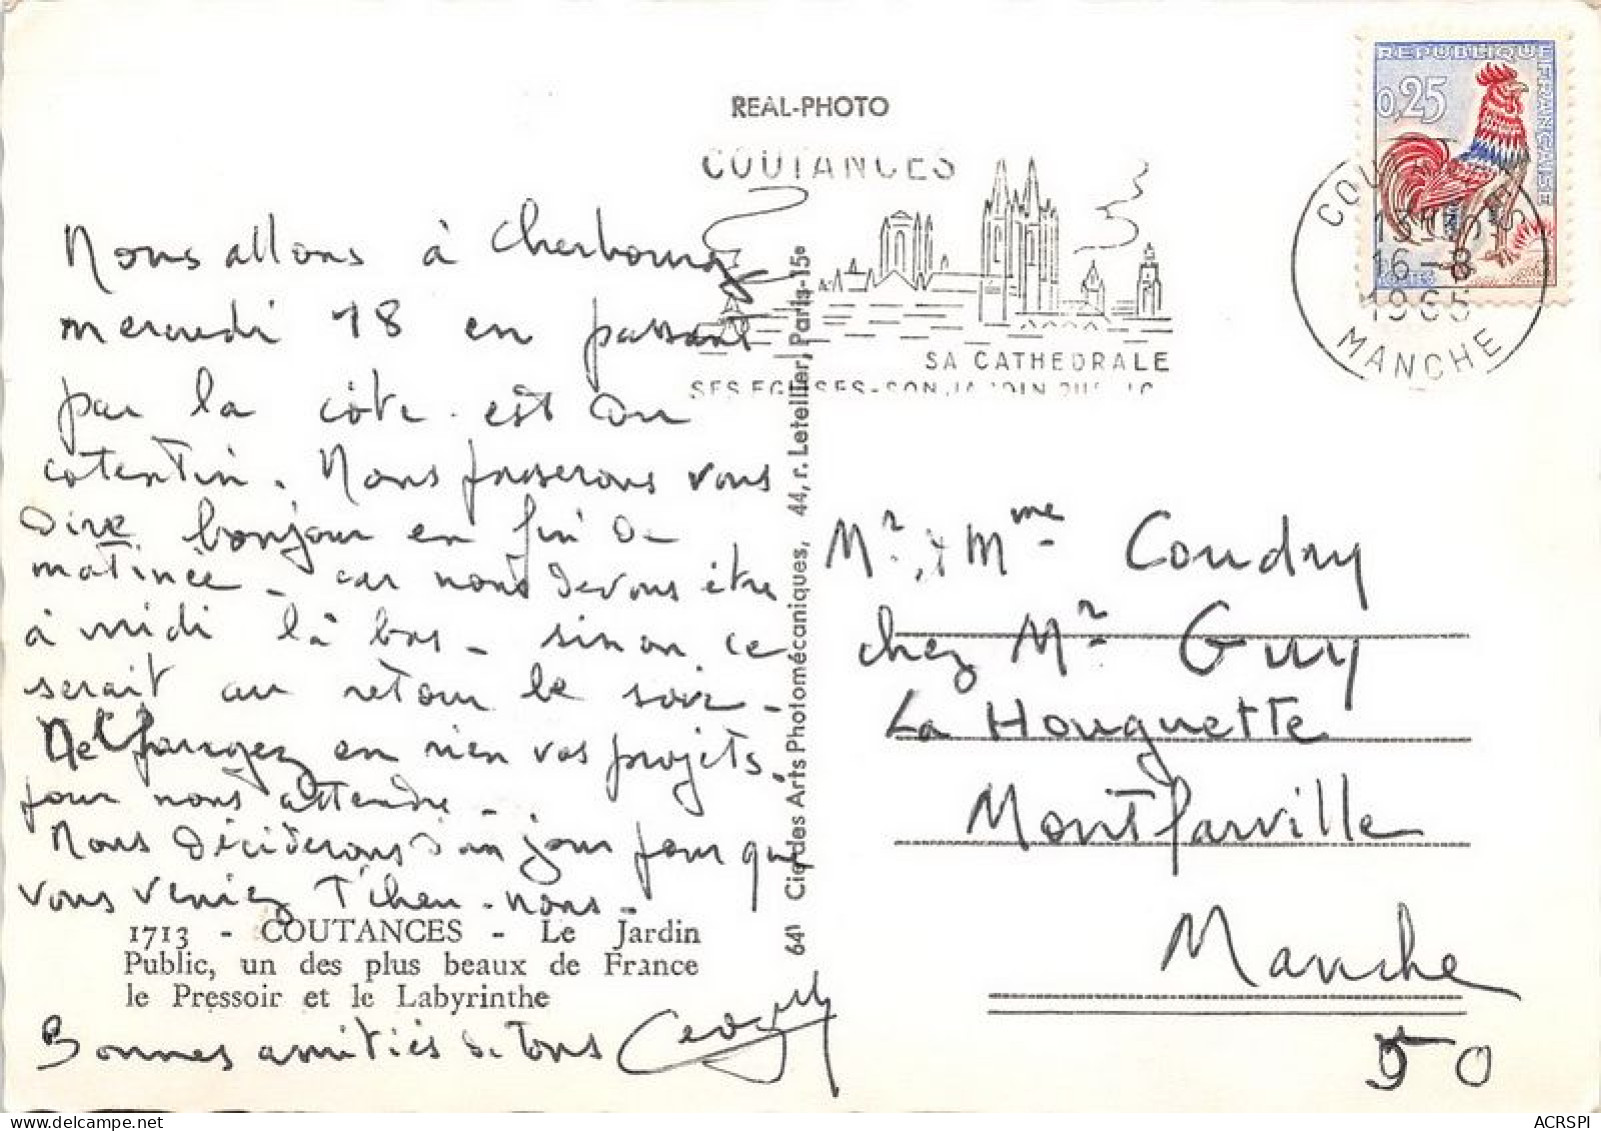 REAL-PHOTO
COUTANCES
SA CATHEDRALE
SES EGLISES-SON JARDIN PUBLIC
REPUBLIQUE FRANÇAISE
0,25
POSTES
COUTANCES
16-8
1965
MANCHE
Nous allons à Cherbourg
mercredi 18 en passant
par la côte est du
cotentin. Nous passerons vous
dire bonjour en fin de
matinée - car nous devons être
à midi là bas - sinon ce
serait au retour le soir -
Ne changez en rien vos projets.
pour nous attendre -
Nous déciderons d'un jour pour que
vous veniez chez-nous -
1713 - COUTANCES - Le Jardin
Public, un des plus beaux de France
le Pressoir et le Labyrinthe
Bonnes amitiés de tous
641 Cie des Arts Photomécaniques, 44, r. Letellier, Paris-15e
Mr. & Mme Coudry
chez Mr Guy
La Houguette
Montfarville
Manche
50
ACRSPI